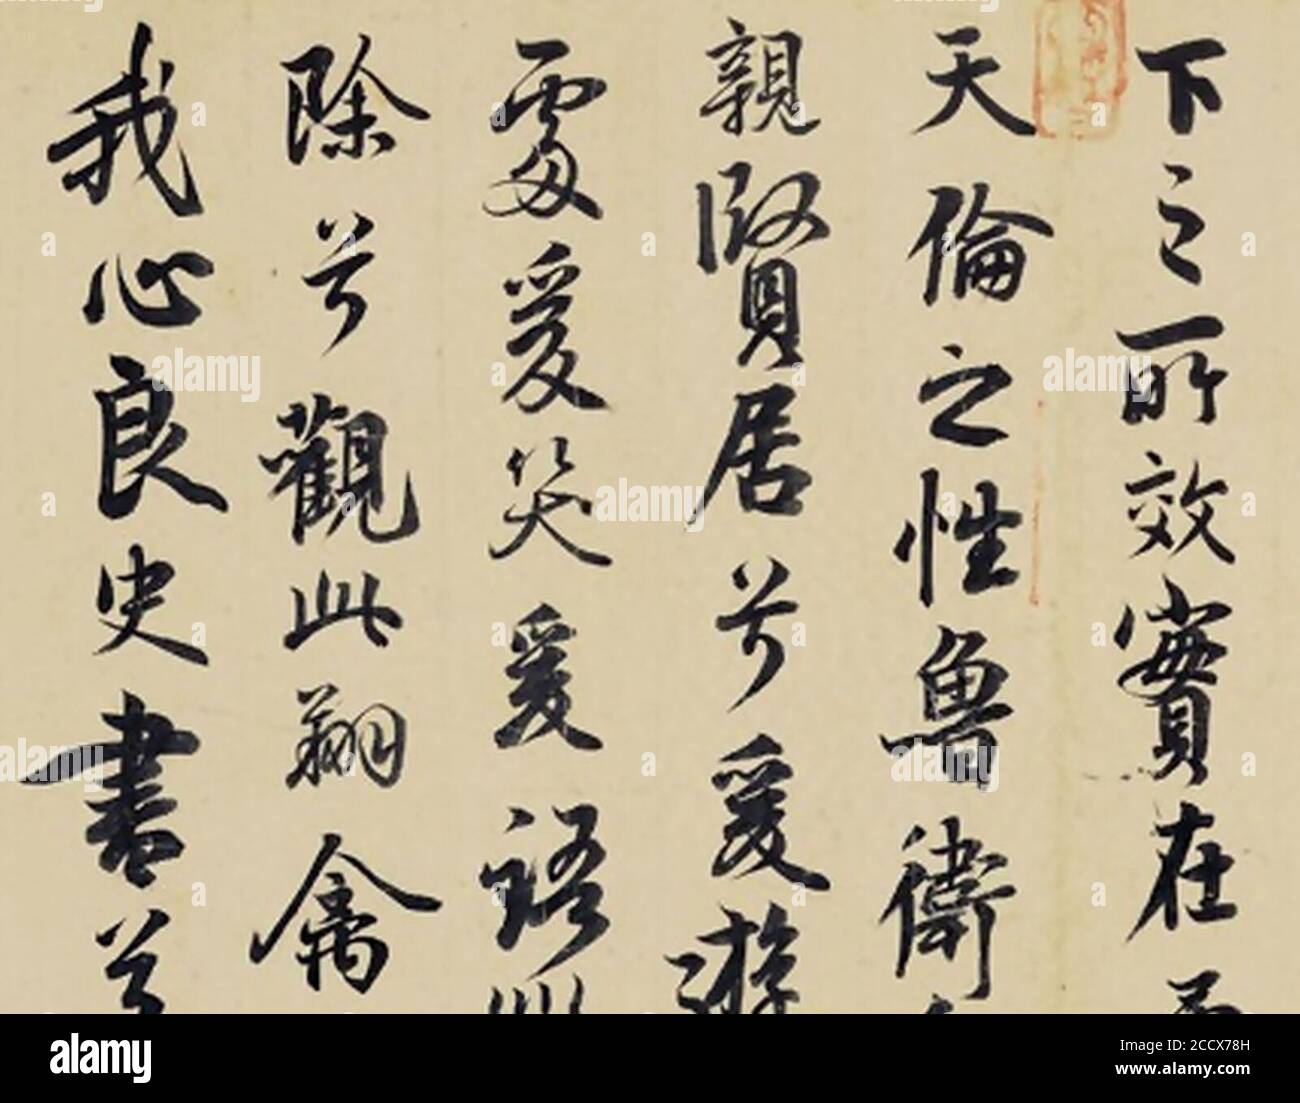 下之所效實在
天倫之性魯衛
親賢居兮爰遊
處爰笑爰語
除兮觀此翔禽
我心良史書兮
alamy
Image ID: 2CCX78H
www.alamy.com